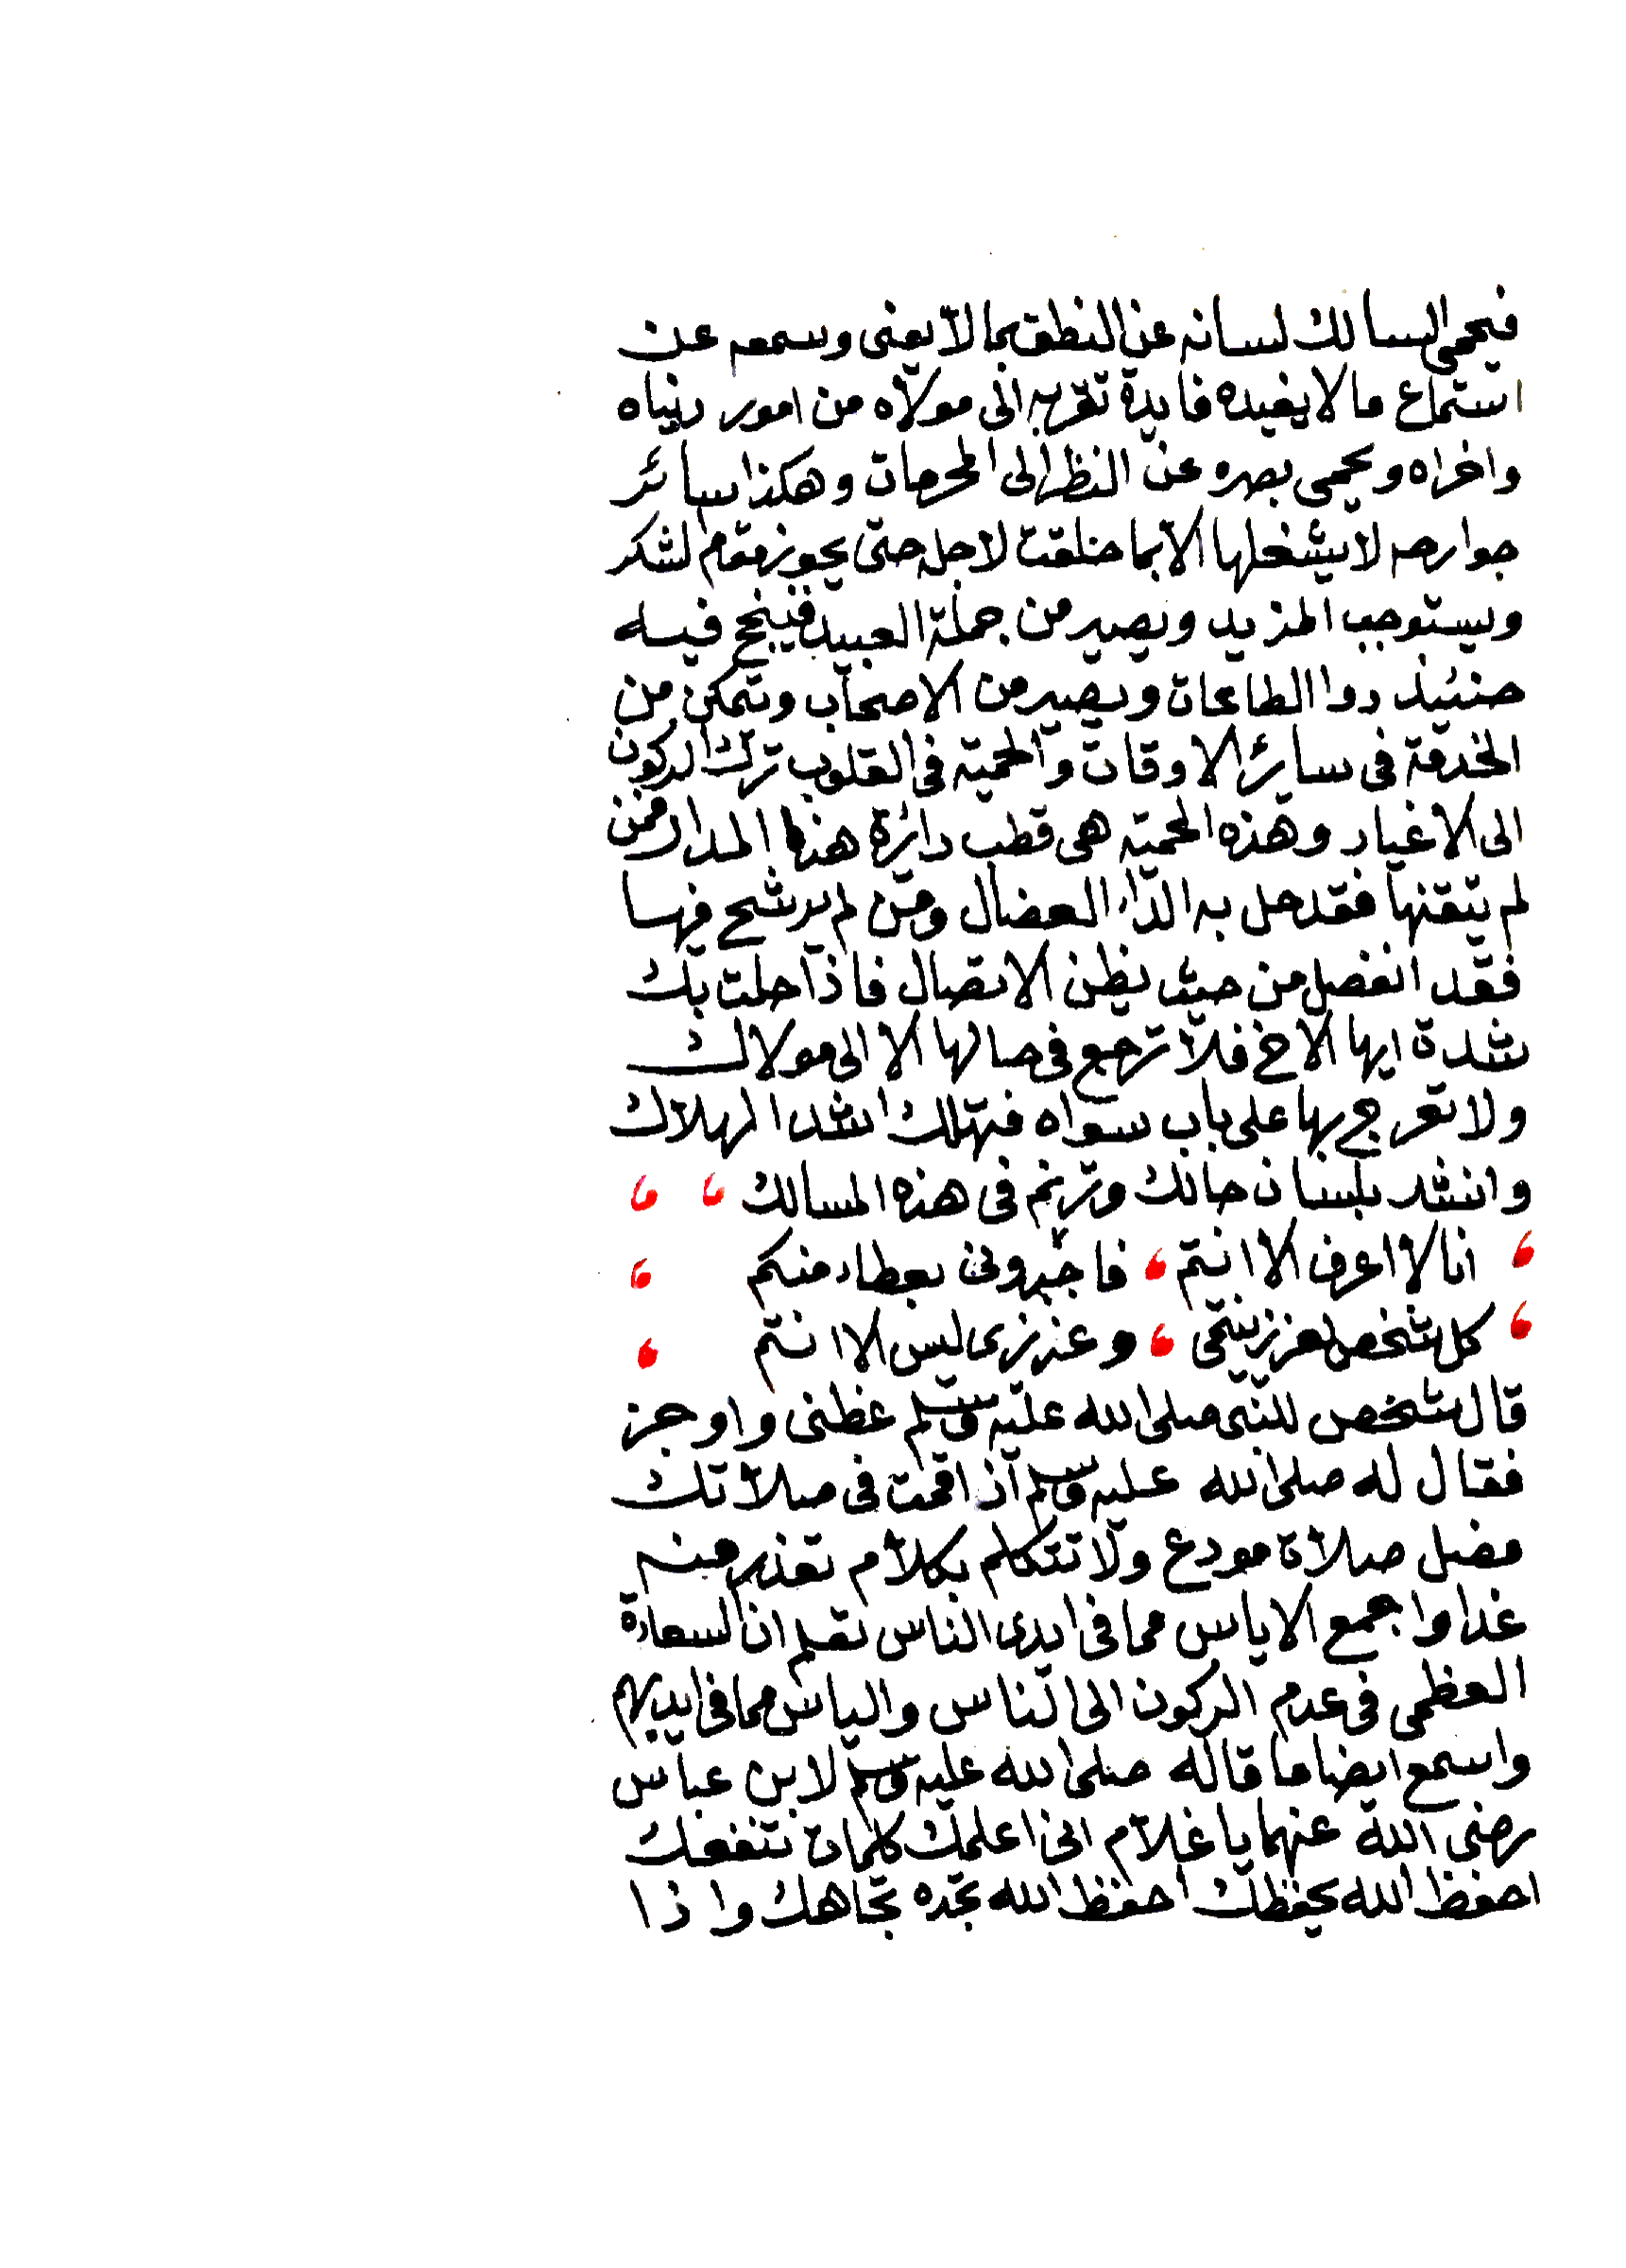 فيحمى السالك لسانه عن النطق بما لا يعنى وسمعه عن
استماع ما لا يفيده فايدة تقربه الى مولاه من امور دنياه
واخراه ويحمى بصره عن النظر الى المحرمات وهكذا سائر
جوارحه لا يشغلها الا بما خلقت لاجله حتى يحوز مقام الشكر
ويستوجب المزيد ويصير من جملة العبيد فينجح فيه
حنئيذ دوا الطاعات ويصير من الاصحاب وتمكن من
الخدمة فى سائر الاوقات والحمية فى القلوب ترك الركون
الى الاغيار وهذه الحمية هى قطب دائرة هذا المدار فمن
لم يتقنها فقد حل به الداء العضال ومن لم يرشح فيها
فقد انفصل من حيث يظن الاتصال فاذا حلت بك
شدة ايها الاخ فلا ترجع فى حالها الا الى مولاك
ولا تعرج بها على باب سواه فتهلك اشد الهلاك
وانشد بلسان حالك وترنم فى هذه المسالك
انا لا اعرف الا انتم فاجبرونى بعطاء منكم
كل شخص لعزيز ينتمى وعزيزى ليس الا انتم
قال شخص للنبى صلى الله عليه وسلم عظنى واوجز
فقال له صلى الله عليه وسلم اذا قمت فى صلاتك
فصل صلاة مودع ولا تتكلم بكلام تعذر منه
غدا واجمع الاياس مما فى ايدى الناس تعلم ان السعادة
العظمى فى عدم الركون الى الناس والياس مما فى ايديهم
واسمع ايضا ما قاله صلى الله عليه وسلم لابن عباس
رضى الله عنهما يا غلام انى اعلمك كلمات تنفعك
احفظ الله يحفظك احفظ الله تجده تجاهك واذا